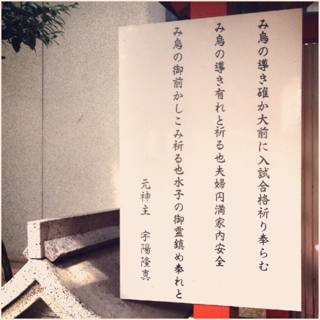 み鳥の導き確か大前に入試合格祈り奉らむ
み鳥の導き有れと祈る也夫婦円満家内安全
み鳥の御前かしこみ祈る也水子の御霊鎮め奉れと
元神主 宇陽隆真